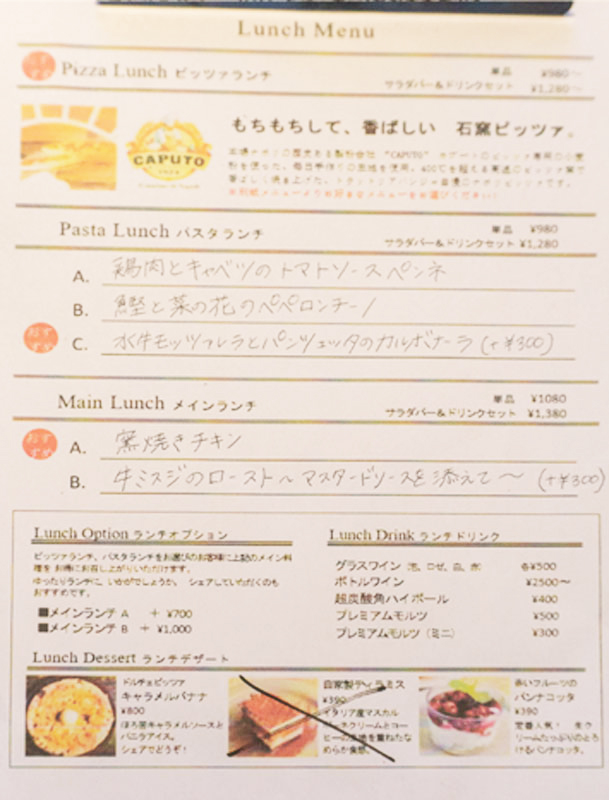 Lunch Menu
おすすめ
Pizza Lunch ピッツァランチ 単品 ¥980〜
サラダバー&ドリンクセット ¥1,280〜
CAPUTO
もちもちして、香ばしい 石窯ピッツァ。
Pasta Lunch パスタランチ 単品 ¥980
サラダバー&ドリンクセット ¥1,280
A. 鶏肉とキャベツのトマトソースペンネ
B. 鰹と菜の花のペペロンチーノ
おすすめ
C. 水牛モッツァレラとパンツェッタのカルボナーラ (+¥300)
Main Lunch メインランチ 単品 ¥1080
サラダバー&ドリンクセット ¥1,380
おすすめ
A. 窯焼きチキン
B. 牛ミスジのロースト〜マスタードソースを添えて〜 (+¥300)
Lunch Option ランチオプション
ピッツァランチ、パスタランチをお選びのお客様に上記のメイン料
理を お得にお召し上がりいただけます。
ゆったりランチに、いかがでしょうか。 シェアしていただくのも
おすすめです。
■メインランチ A + ¥700
■メインランチ B + ¥1,000
Lunch Drink ランチドリンク
グラスワイン (泡、ロゼ、白、赤) 各¥500
ボトルワイン ¥2500〜
超炭酸角ハイボール ¥400
プレミアムモルツ ¥500
プレミアムモルツ (ミニ) ¥300
Lunch Dessert ランチデザート
ドルチェピッツァ
キャラメルバナナ
¥800
ほろ苦キャラメルソースと
バニラアイス。
シェアでどうぞ!
自家製ティラミス
¥390
イタリア産マスカル
めらか食感。
赤いフルーツの
パンナコッタ
¥390
定番人気! 生ク
リームたっぷりのとろ
けるパンナコッタ。